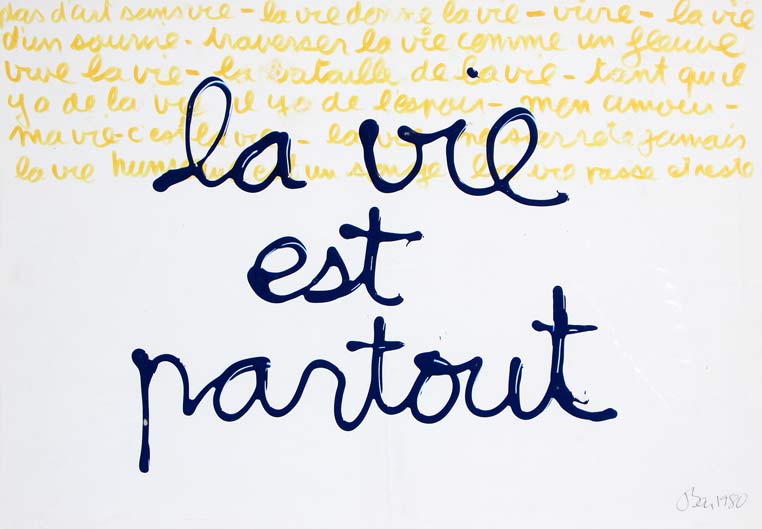 pas d'art sans vie - la vie donne la vie - vivre - la vie
d'un sourire - traverser la vie comme un fleuve
vive la vie - la bataille de la vie - tant qu'il
y a de la vie il y a de l'espoir - mon amour -
ma vie - c'est la vie - la vie ne s'arrête jamais
la vie humaine est un songe la vie passe et reste
la vie
est
partout
Ben, 1980